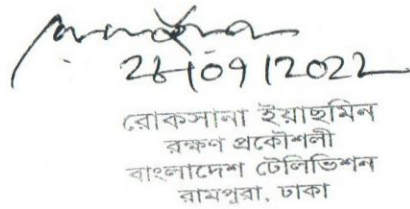 28/09/2022
রোকসানা ইয়াছমিন
রক্ষণ প্রকৌশলী
বাংলাদেশ টেলিভিশন
রামপুরা, ঢাকা